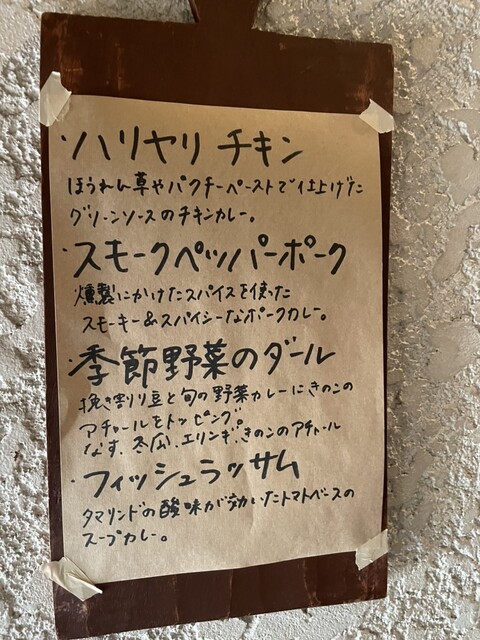 ・ハリヤリ チキン
ほうれん草やパクチーペーストで仕上げた
グリーンソースのチキンカレー。
・スモークペッパーポーク
燻製にかけたスパイスを使った
スモーキー&スパイシーなポークカレー。
・季節野菜のダール
挽き割り豆と旬の野菜カレーにきのこの
アチャールをトッピング。
なす、冬瓜、エリンギ、きのこのアチャール
・フィッシュラッサム
タマリンドの酸味が効いたトマトベースの
スープカレー。